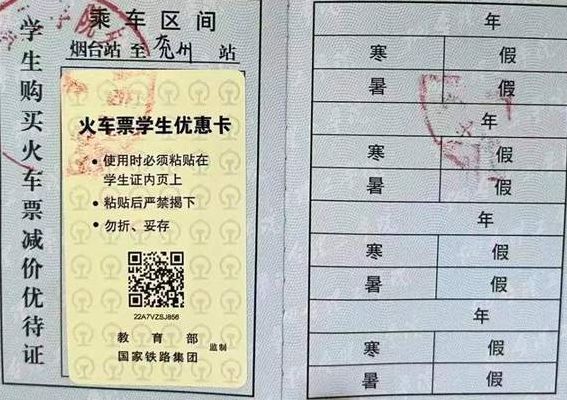 学生购买火车票减价优待证
乘车区间
烟台站 至 兖州 站
火车票学生优惠卡
• 使用时必须粘贴在
学生证内页上
• 粘贴后严禁揭下
• 勿折、妥存
22A7VZSJ856
教育部
国家铁路集团 监制
年
寒 假
暑 假
年
寒 假
暑 假
年
寒 假
暑 假
年
寒 假
暑 假